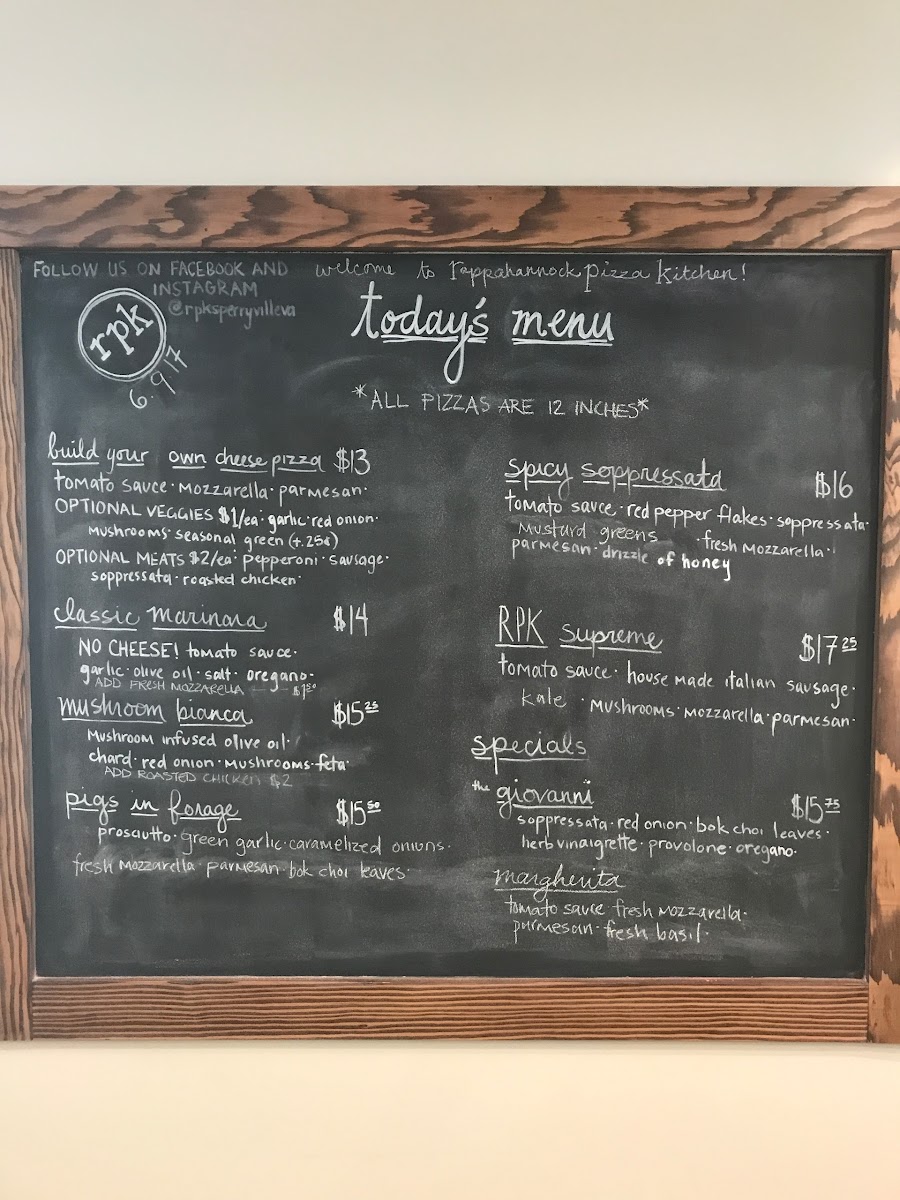 FOLLOW US ON FACEBOOK AND
INSTAGRAM
@rpksperryvilleva
rpk
6.9.17
welcome to rappahannock pizza kitchen!
today's menu
*ALL PIZZAS ARE 12 INCHES*
build your own cheese pizza $13
tomato sauce · mozzarella · parmesan ·
OPTIONAL VEGGIES $1/ea · garlic · red onion ·
mushrooms · seasonal green (+.25¢)
OPTIONAL MEATS $2/ea · pepperoni · sausage ·
soppressata · roasted chicken ·
classic marinara $14
NO CHEESE! tomato sauce ·
garlic · olive oil · salt · oregano ·
ADD FRESH MOZZARELLA
mushroom bianca $15.25
mushroom infused olive oil ·
chard · red onion · mushrooms · feta ·
ADD ROASTED CHICKEN $2
pigs in forage $15.50
prosciutto · green garlic · caramelized onions ·
fresh mozzarella · parmesan · bok choi leaves ·
spicy soppressata $16
tomato sauce · red pepper flakes · soppressata ·
mustard greens · fresh mozzarella ·
parmesan · drizzle of honey
RPK supreme $17.25
tomato sauce · house made italian sausage ·
kale · mushrooms · mozzarella · parmesan ·
specials
the giovanni $15.75
soppressata · red onion · bok choi leaves ·
herb vinaigrette · provolone · oregano ·
margherita
tomato sauce · fresh mozzarella ·
parmesan · fresh basil ·